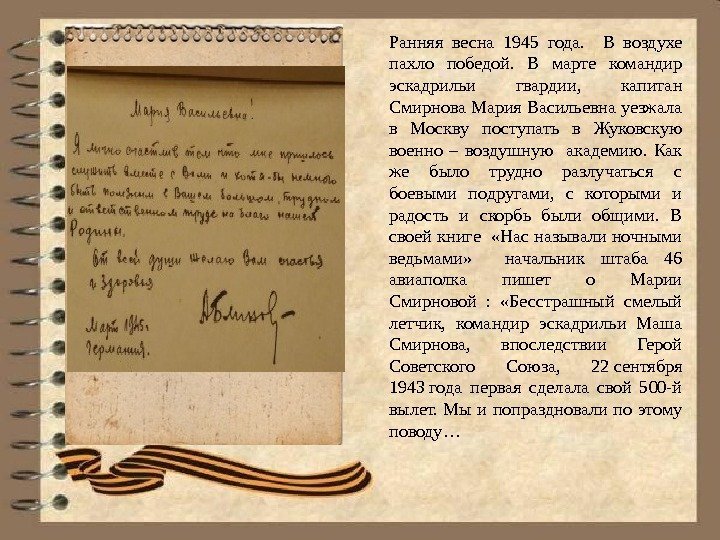 Мария Васильевна!
Я лично счастлив тем что мне пришлось
служить вместе с Вами и хотя-бы немного
быть полезным в Вашем большом, трудном
и ответственном труде на благо нашей
Родины.
От всей души желаю Вам счастья
и здоровья
Март 1945г.
Германия.
Ранняя весна 1945 года. В воздухе
пахло победой. В марте командир
эскадрильи гвардии, капитан
Смирнова Мария Васильевна уезжала
в Москву поступать в Жуковскую
военно – воздушную академию. Как
же было трудно разлучаться с
боевыми подругами, с которыми и
радость и скорбь были общими. В
своей книге «Нас называли ночными
ведьмами» начальник штаба 46
авиаполка пишет о Марии
Смирновой : «Бесстрашный смелый
летчик, командир эскадрильи Маша
Смирнова, впоследствии Герой
Советского Союза, 22 сентября
1943 года первая сделала свой 500-й
вылет. Мы и попраздновали по этому
поводу…